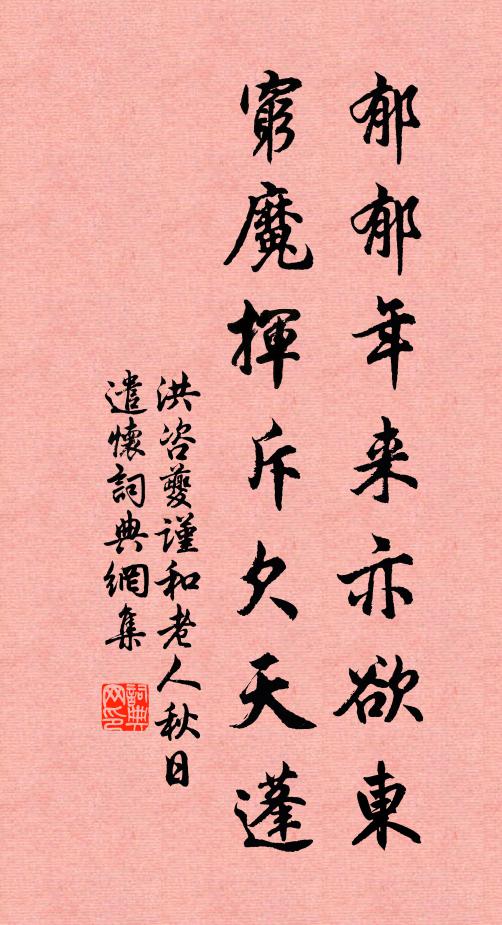 郁郁年来亦欲東
窮魔揮斥欠天蓬
洪咨夔謹和老人秋日
遣懷詞典網集
詞典网印